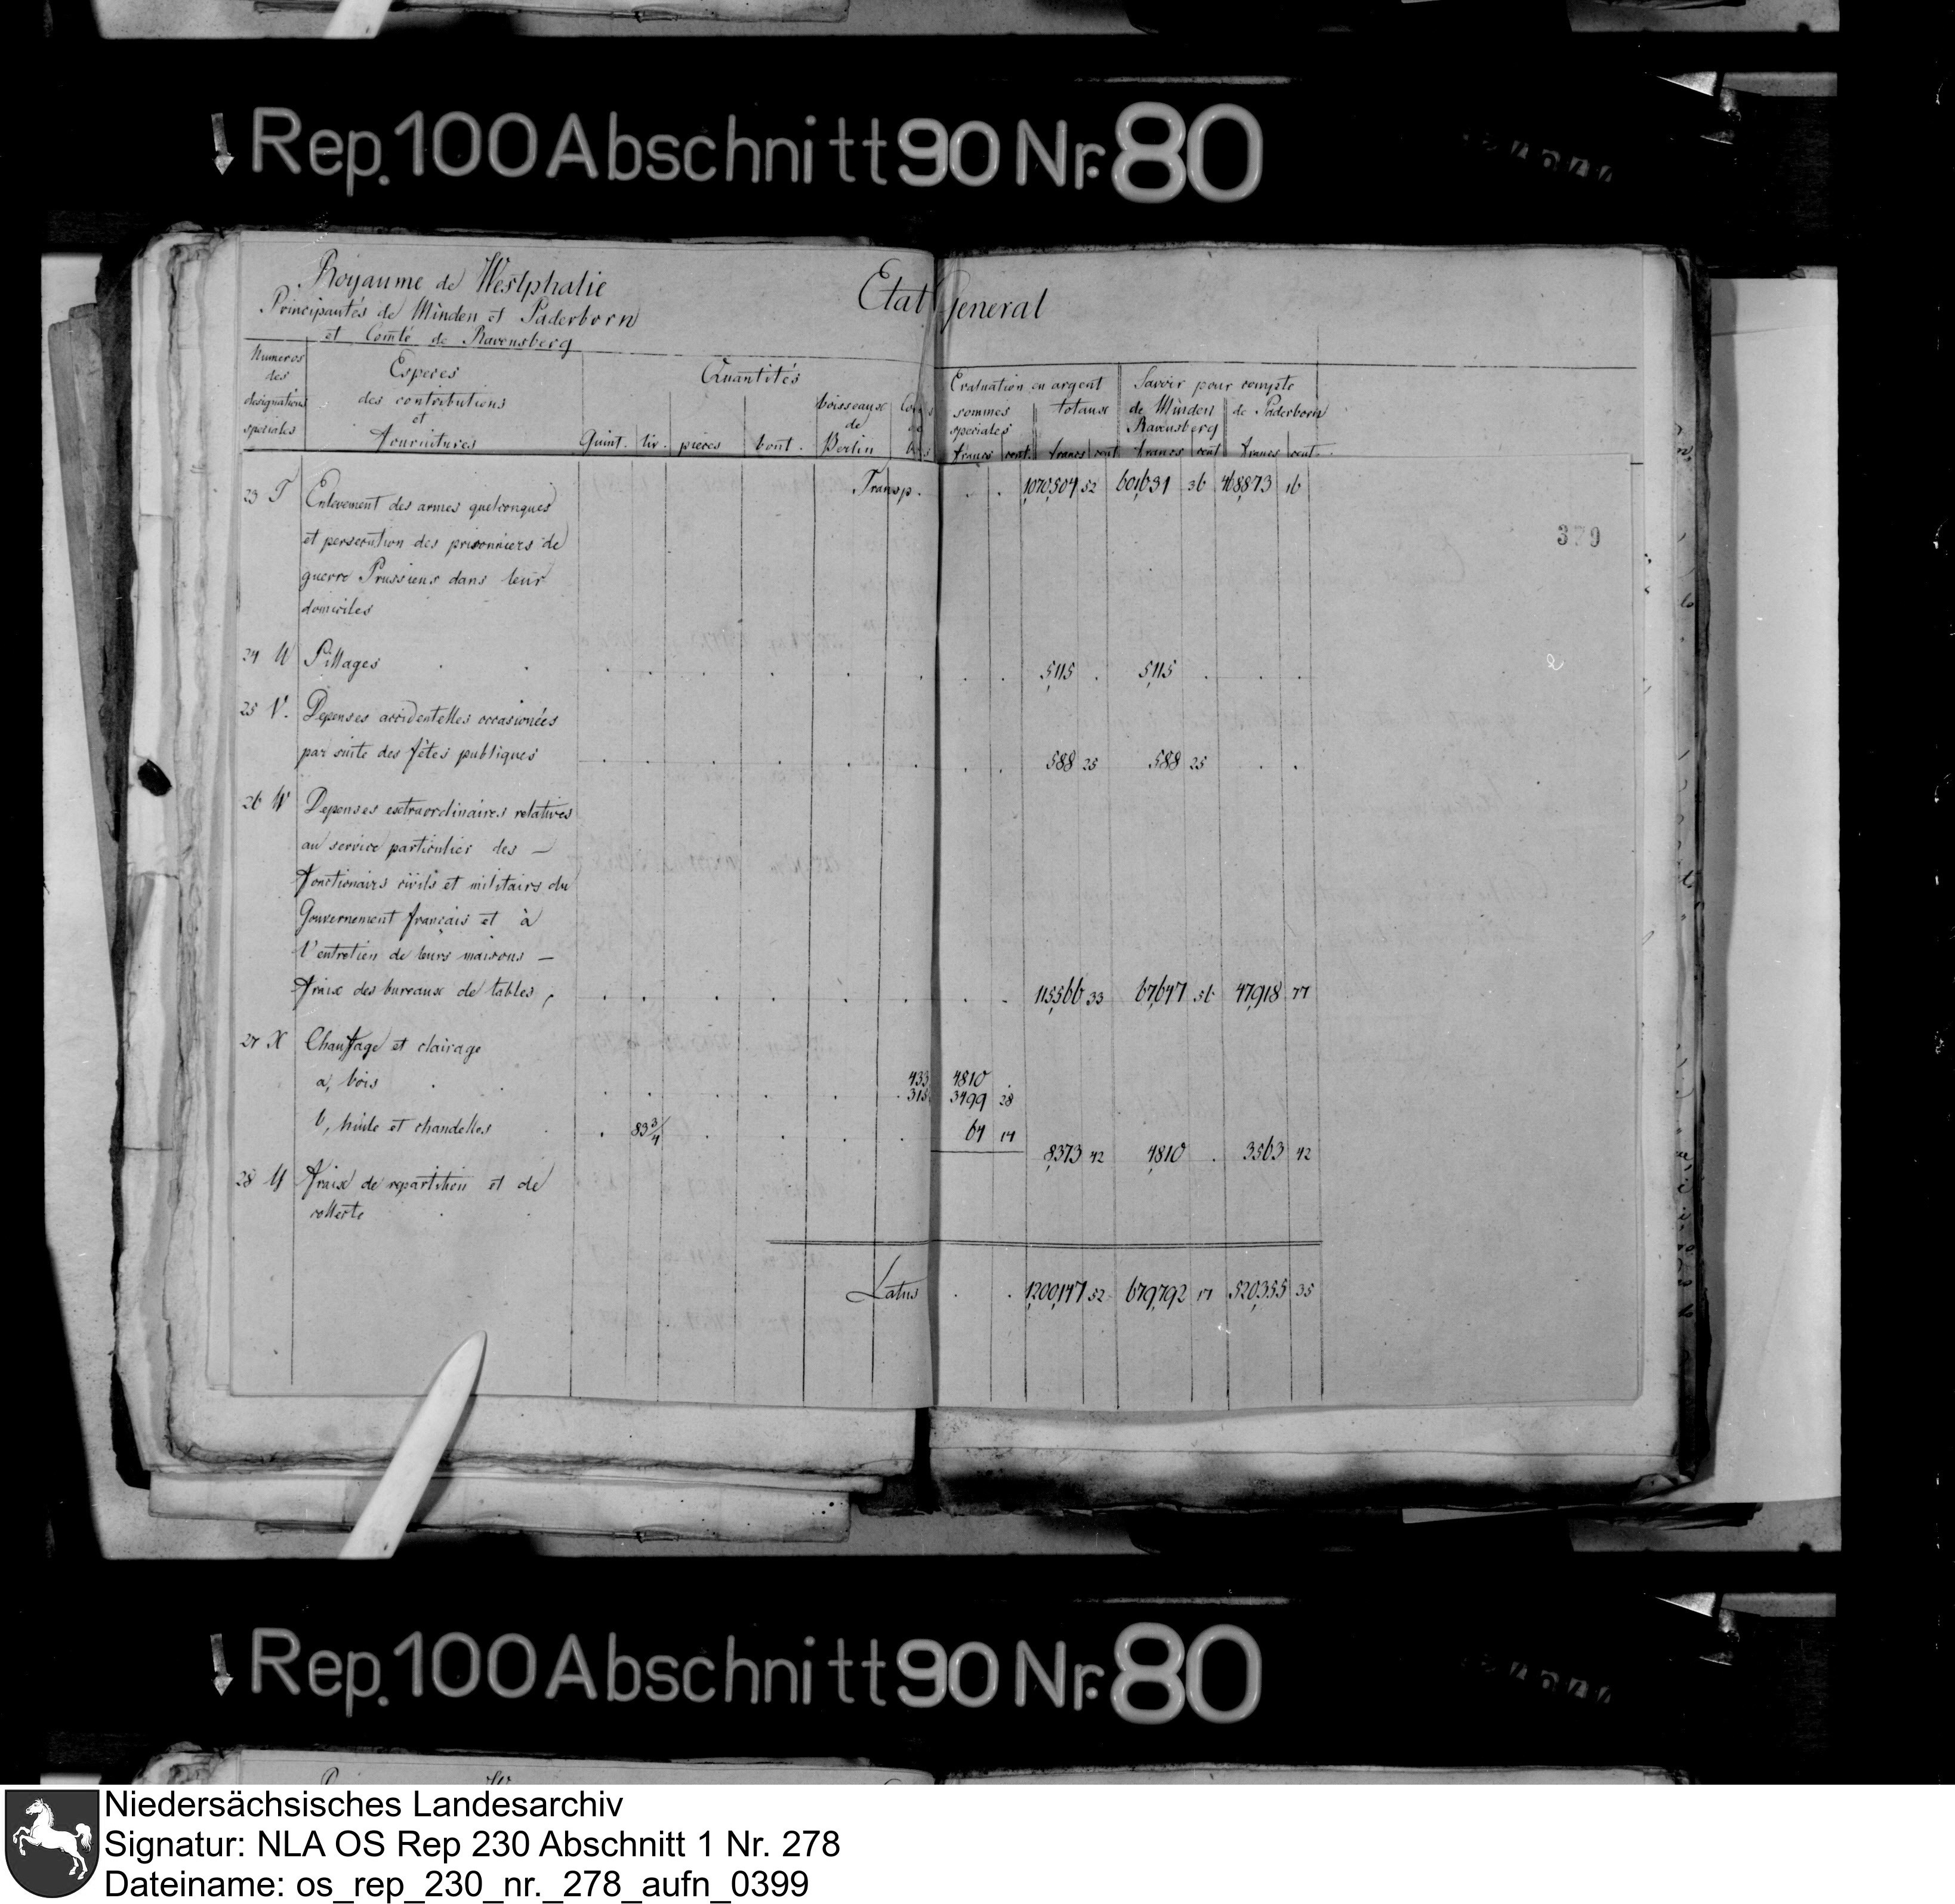 Rep. 100 Abschnitt 90 Nr. 80
Royaume de Westphalie
Principautés de Minden et Paderborn
et Comté de Ravensberg
Etat General
Numeros des designations speciales
Especes des contributions et fournitures
Quantités
Quint. liv. pieces bout. boisseaux de Berlin
Evaluation en argent
sommes speciales totaux
francs cent. francs cent
Savoir pour compte
de Minden Ravensberg de Paderborn
francs cent francs cent.
Transp. . . 1,070,504 52 601,631 36 468,873 16
379
23 T Enlevement des armes quelconques
et persecution des prisonniers de
guerre Prussiens dans leur
domiciles
24 U Pillages . . 5,115 . 5,115 . . .
25 V. Depenses accidentelles occasionées
par suite des fêtes publiques 588 25 588 25 . .
26 W Depenses extraordinaires relatives
au service particulier des —
fonctionairs civils et militairs du
Gouvernement français et à
l'entretien de leurs maisons —
fraix des bureaux de tables, 115,566 33 67,647 56 47,918 77
27 X Chauffage et clairage
a, bois . . 433 4810 .
318 3499 28
b, huile et chandelles . . 83 3/4 64 14
8,373 42 4,810 . 3563 42
28 Y fraix de repartition et de
collecte . .
Latus . . 1,200,147 52 679,792 17 520,355 35
Rep. 100 Abschnitt 90 Nr. 80
Niedersächsisches Landesarchiv
Signatur: NLA OS Rep 230 Abschnitt 1 Nr. 278
Dateiname: os_rep_230_nr._278_aufn_0399